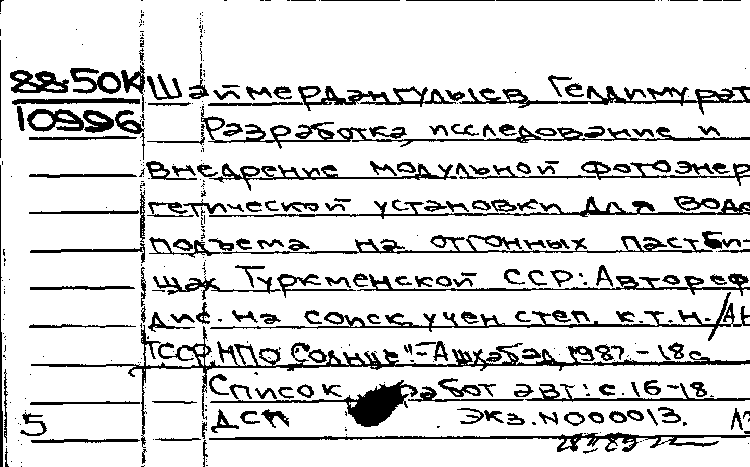 88-50К Шаймердангулыев, Гелдимурат
10996 Разработка, исследование и
внедрение модульной фотоэнер
гетической установки для водо
подъема на отгонных пастби
щах Туркменской ССР: Автореф
дис. на соиск. учен. степ. к.т.н. / АН
ТССР, НПО "Солнце". - Ашхабад, 1987. - 18 с.
Список работ авт: с. 16-18.
5 ДСП Экз. N000013.